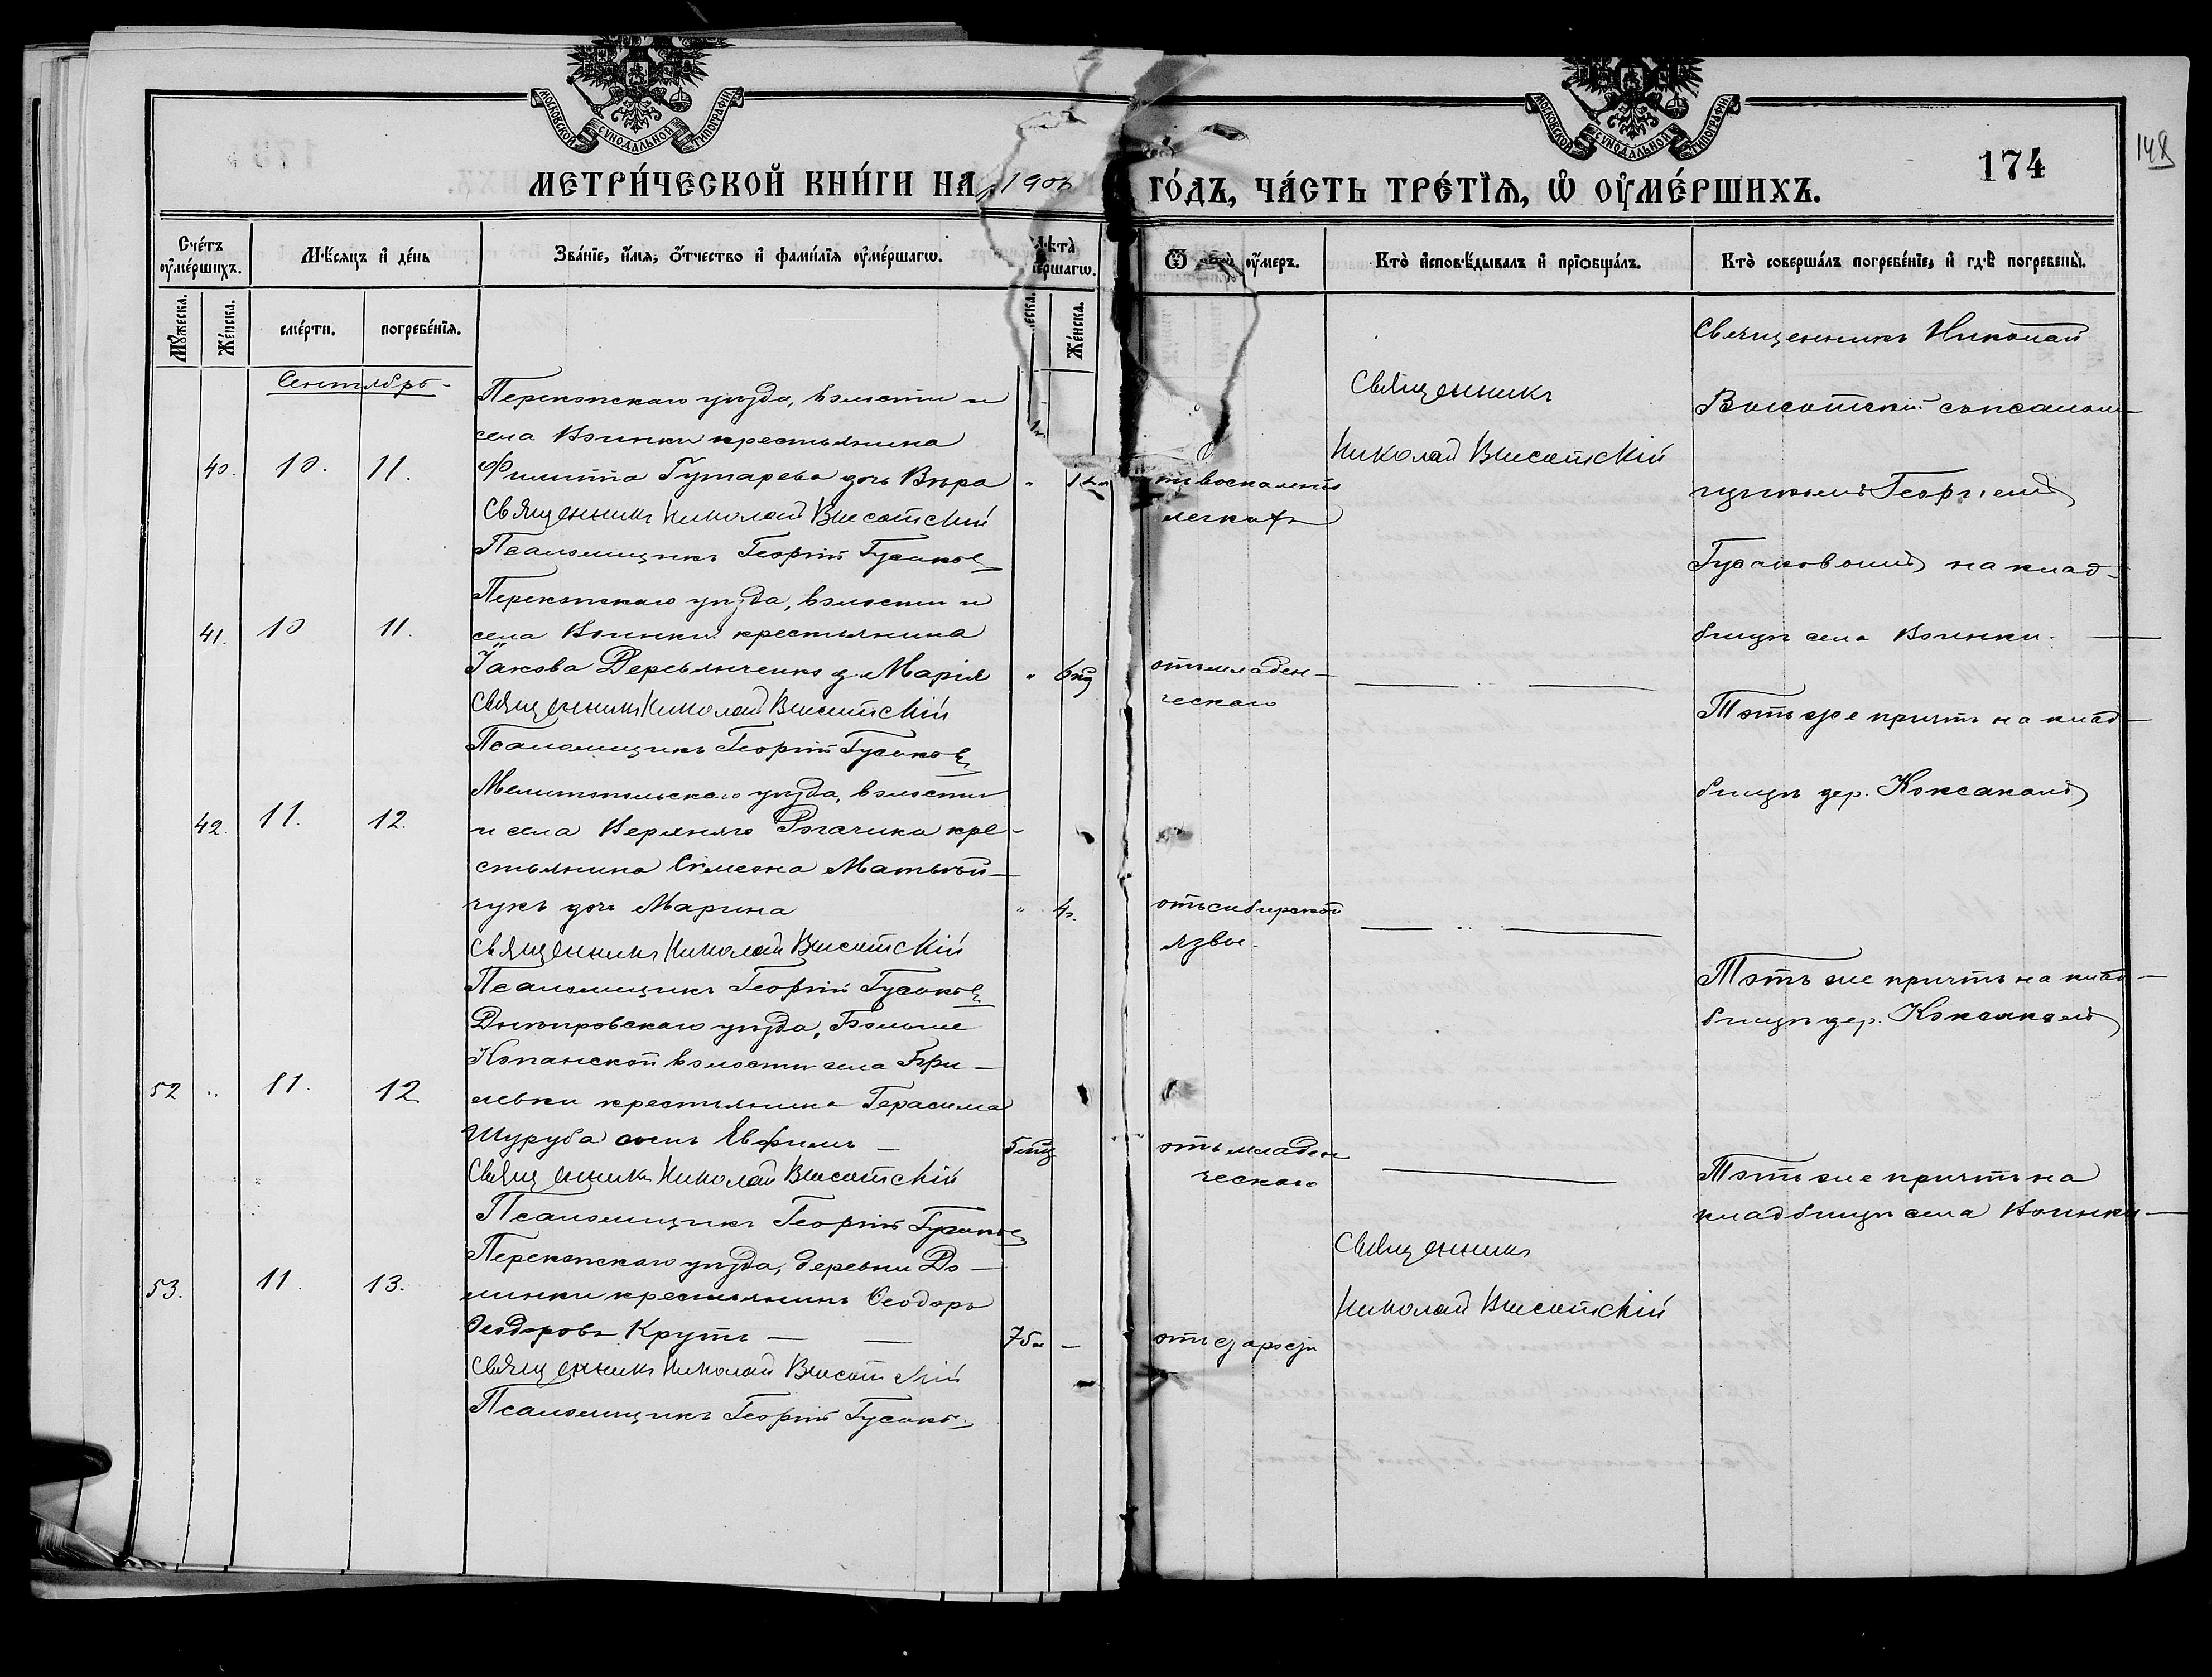 МОСКОВСКОЙ СѴНОДАЛЬНОЙ ТИПОГРАФІИ
МОСКОВСКОЙ СѴНОДАЛЬНОЙ ТИПОГРАФІИ
МЕТРИ́ЧЕСКОЙ КНИ́ГИ НА 190 ГО́ДЪ, ЧА́СТЬ ТРЕ́ТІѦ, Ѡ ОУ҆МЕ́РШИХЪ.
174
148
Сче́тъ оу҆ме́ршихъ.
Мѣ́сяцъ и҆ де́нь
Зва́нїе, и҆́мя, ѻ҆́тчество и҆ фами́лїя оу҆ме́ршагѡ.
Ѿ оу҆́меръ.
Кто̀ и҆сповѣ́дывалъ и҆ прїѡбща́лъ.
Кто̀ соверша́лъ погребе́нїе, и҆ гдѣ̀ погребены̀.
Мꙋ́жеска.
Же́нска.
сме́рти.
погребе́нїя.
Же́нска.
Сентябрь
40. 10. 11.
Перекопскаго уѣзда, волости и
села Воинки крестьянина
Филиппа Гутарева дочь Вѣра
Священникъ Николай Высотскій
Псаломщикъ Георгій Гусаковъ
воспаленія
легкихъ
Священникъ
Николай Высотскій
Священникъ Николай
Высотскій съ псалом-
щикомъ Георгіемъ
Гусаковымъ на клад-
бищѣ села Воинки.
41. 10 11.
Перекопскаго уѣзда, волости и
села Воинки крестьянина
Іакова Деревянченко д. Марія
Священникъ Николай Высотскій
Псаломщикъ Георгій Гусаковъ
" 6 нд
отъ младен-
ческаго
Тотъ же причтъ на клад-
бищѣ дер.
42. 11. 12.
Мелитопольскаго уѣзда, волости
и села Верхняго Рогачика кре-
стьянина Симеона
чукъ дочь Марина
Священникъ Николай Высотскій
Псаломщикъ Георгій Гусаковъ
" 4г.
отъ сибирской
язвы.
Тотъ же причтъ на клад-
бищѣ дер.
52 " 11. 12
Днѣпровскаго уѣзда, Больше
Копанской волости села Бри-
левки крестьянина Герасима
Шуруба сынъ Евфимъ
Священникъ Николай Высотскій
Псаломщикъ Георгій Гусаковъ
отъ младен
ческаго
Тотъ же причтъ на
кладбищѣ села Воинки
53. 11. 13.
Перекопскаго уѣзда, деревни До-
линки крестьянинъ Ѳеодоръ
Ѳеодоровъ Крутъ
Священникъ Николай Высотскій
Псаломщикъ Георгій Гусаковъ
75л
Священникъ
Николай Высотскій